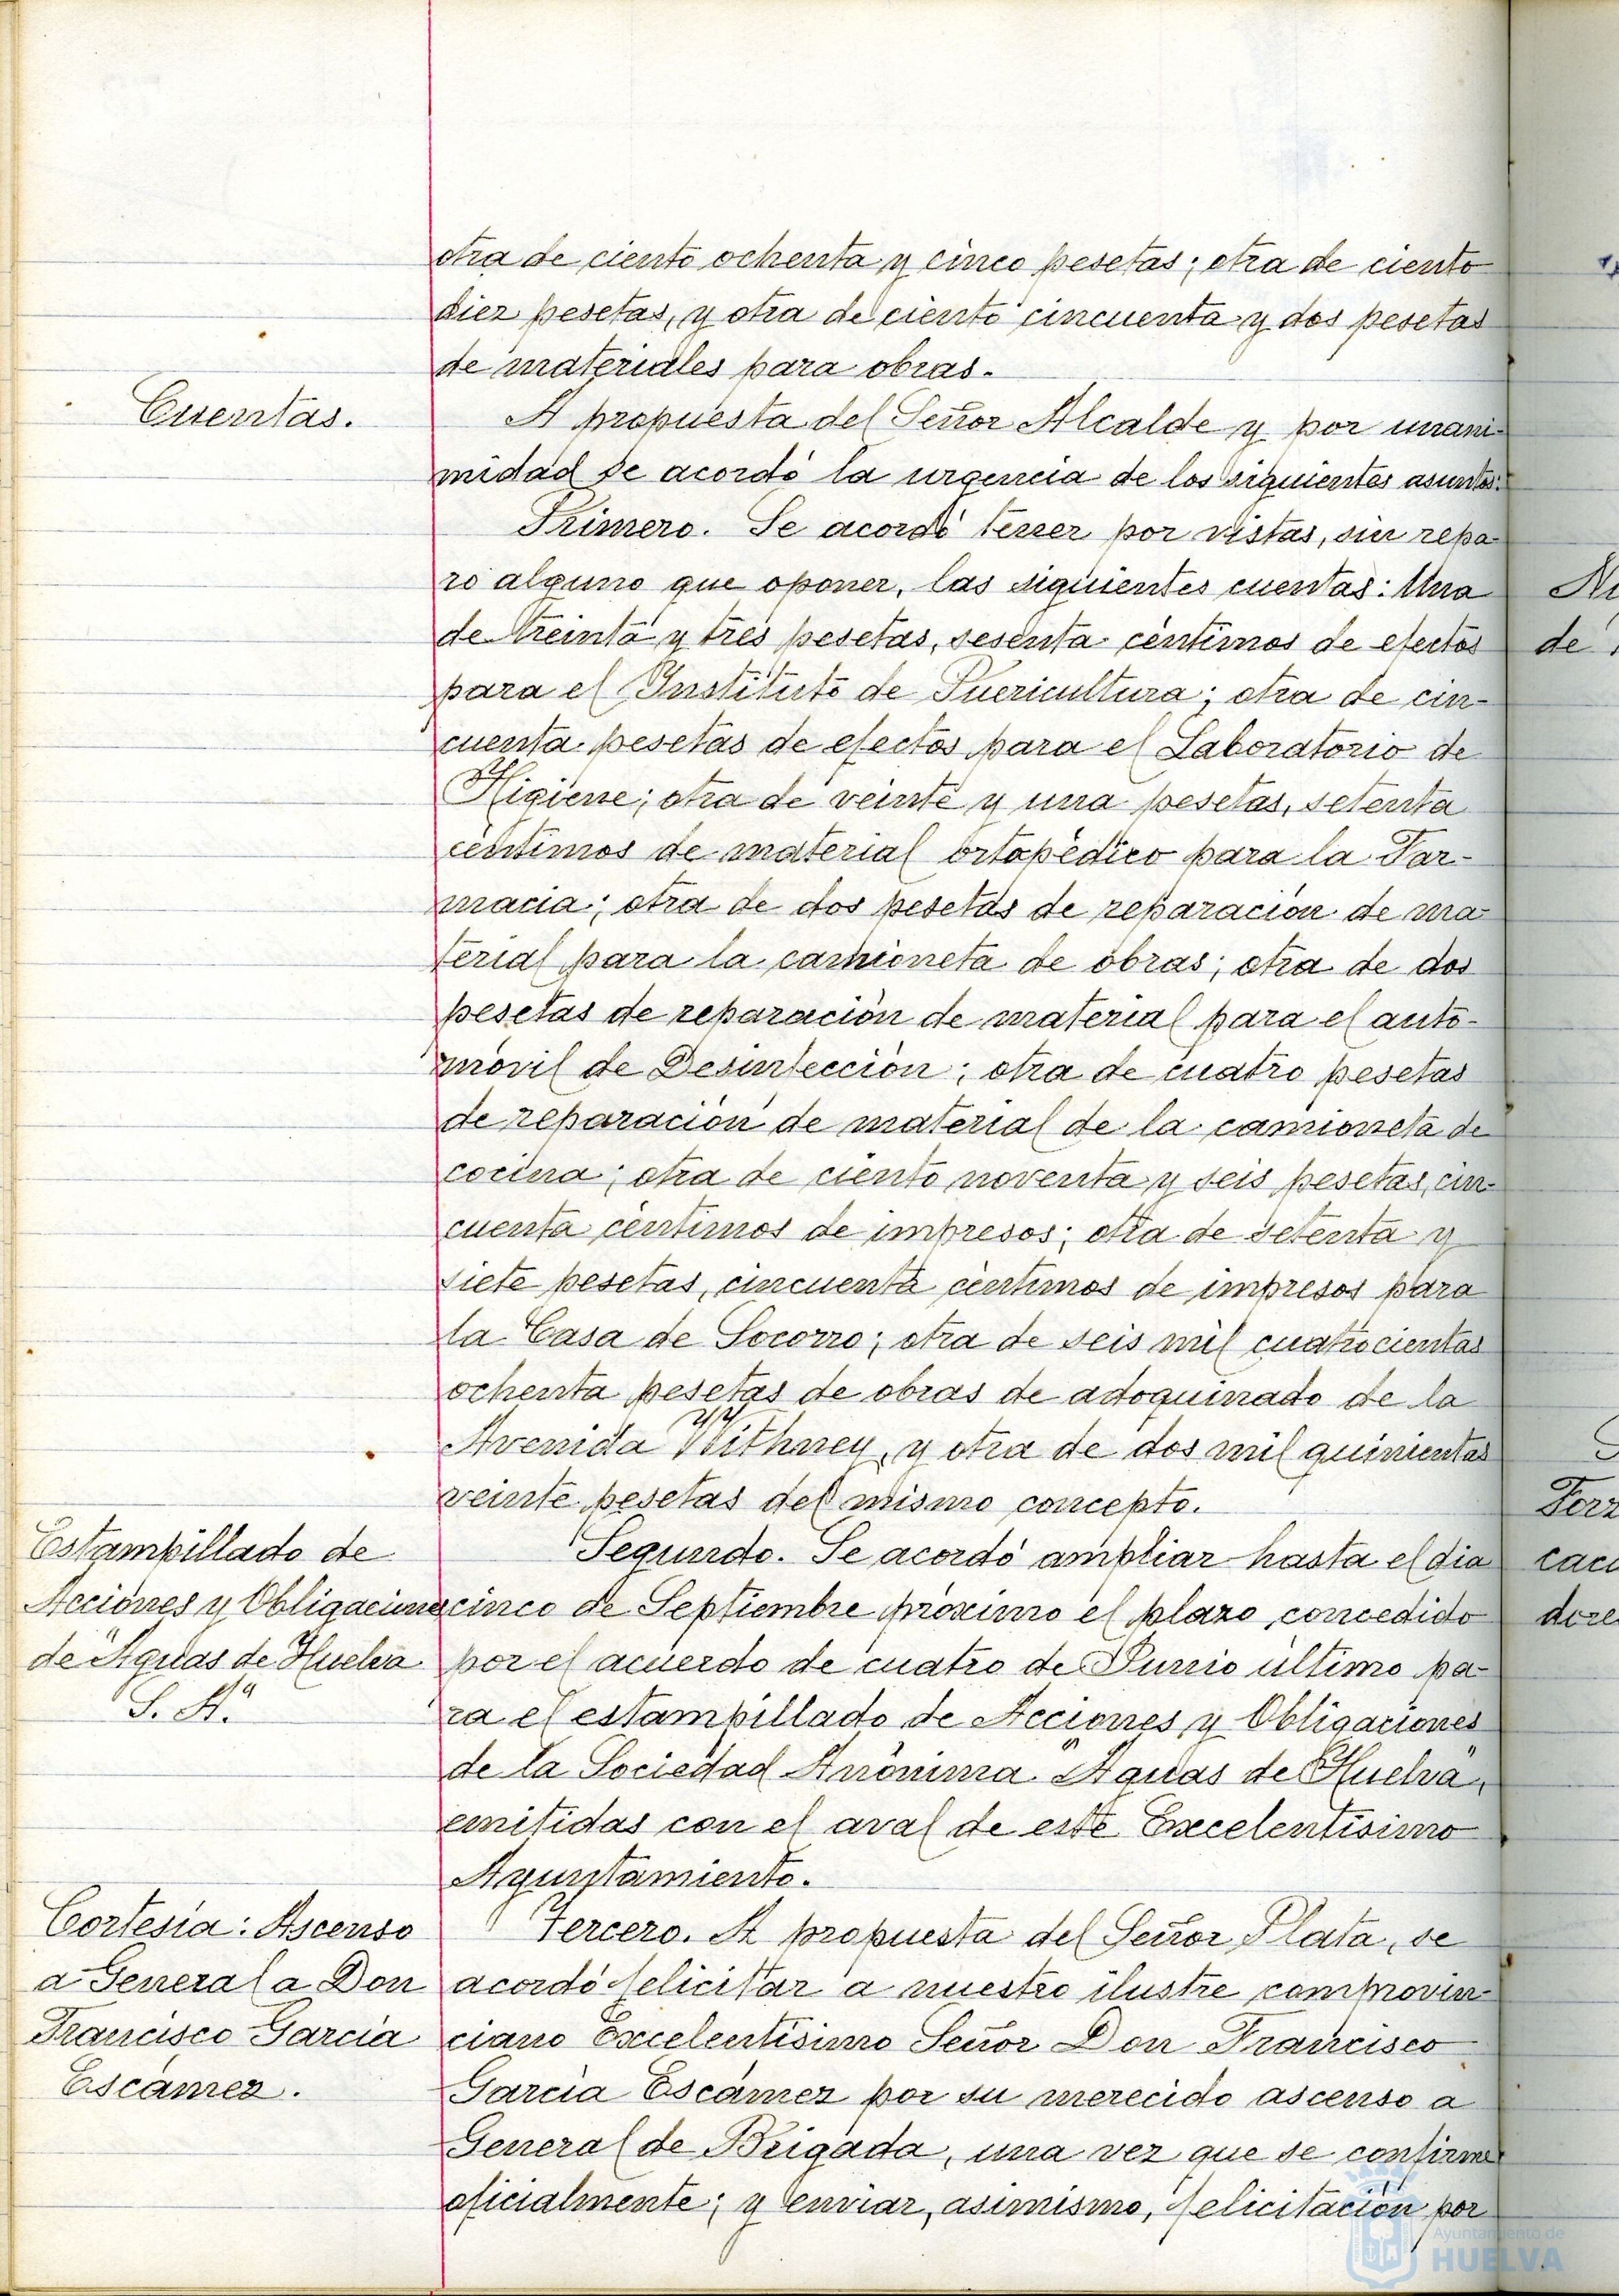 otra de ciento ochenta y cinco pesetas; otra de ciento
diez pesetas, y otra de ciento cincuenta y dos pesetas
de materiales para obras.
Cuentas.
A propuesta del Señor Alcalde y por unani-
midad se acordó la urgencia de los siguientes asuntos:
Primero. Se acordó tener por vistas, sin repa-
ro alguno que oponer, las siguientes cuentas: Una
de treinta y tres pesetas, sesenta céntimos de efectos
para el Instituto de Puericultura; otra de cin-
cuenta pesetas de efectos para el Laboratorio de
Higiene; otra de veinte y una pesetas, setenta
céntimos de material ortopédico para la Far-
macia; otra de dos pesetas de reparación de ma-
terial para la camioneta de obras; otra de dos
pesetas de reparación de material para el auto-
móvil de Desinfección; otra de cuatro pesetas
de reparación de material de la camioneta de
cocina; otra de ciento noventa y seis pesetas, cin-
cuenta céntimos de impresos; otra de setenta y
siete pesetas, cincuenta céntimos de impresos para
la Casa de Socorro; otra de seis mil cuatrocientas
ochenta pesetas de obras de adoquinado de la
Avenida Withney, y otra de dos mil quinientas
veinte pesetas del mismo concepto.
Estampillado de
Acciones y Obligaciones
de "Aguas de Huelva
S. A."
Segundo. Se acordó ampliar hasta el dia
cinco de Septiembre próximo el plazo concedido
por el acuerdo de cuatro de Junio último pa-
ra el estampillado de Acciones y Obligaciones
de la Sociedad Anónima "Aguas de Huelva",
emitidas con el aval de este Excelentísimo
Ayuntamiento.
Cortesía: Ascenso
a General a Don
Francisco García
Escámez.
Tercero. A propuesta del Señor Plata, se
acordó felicitar a nuestro ilustre comprovin-
ciano Excelentísimo Señor Don Francisco
García Escámez por su merecido ascenso a
General de Brigada, una vez que se confirme
oficialmente; y enviar, asimismo, felicitación por
Ayuntamiento de
HUELVA
de